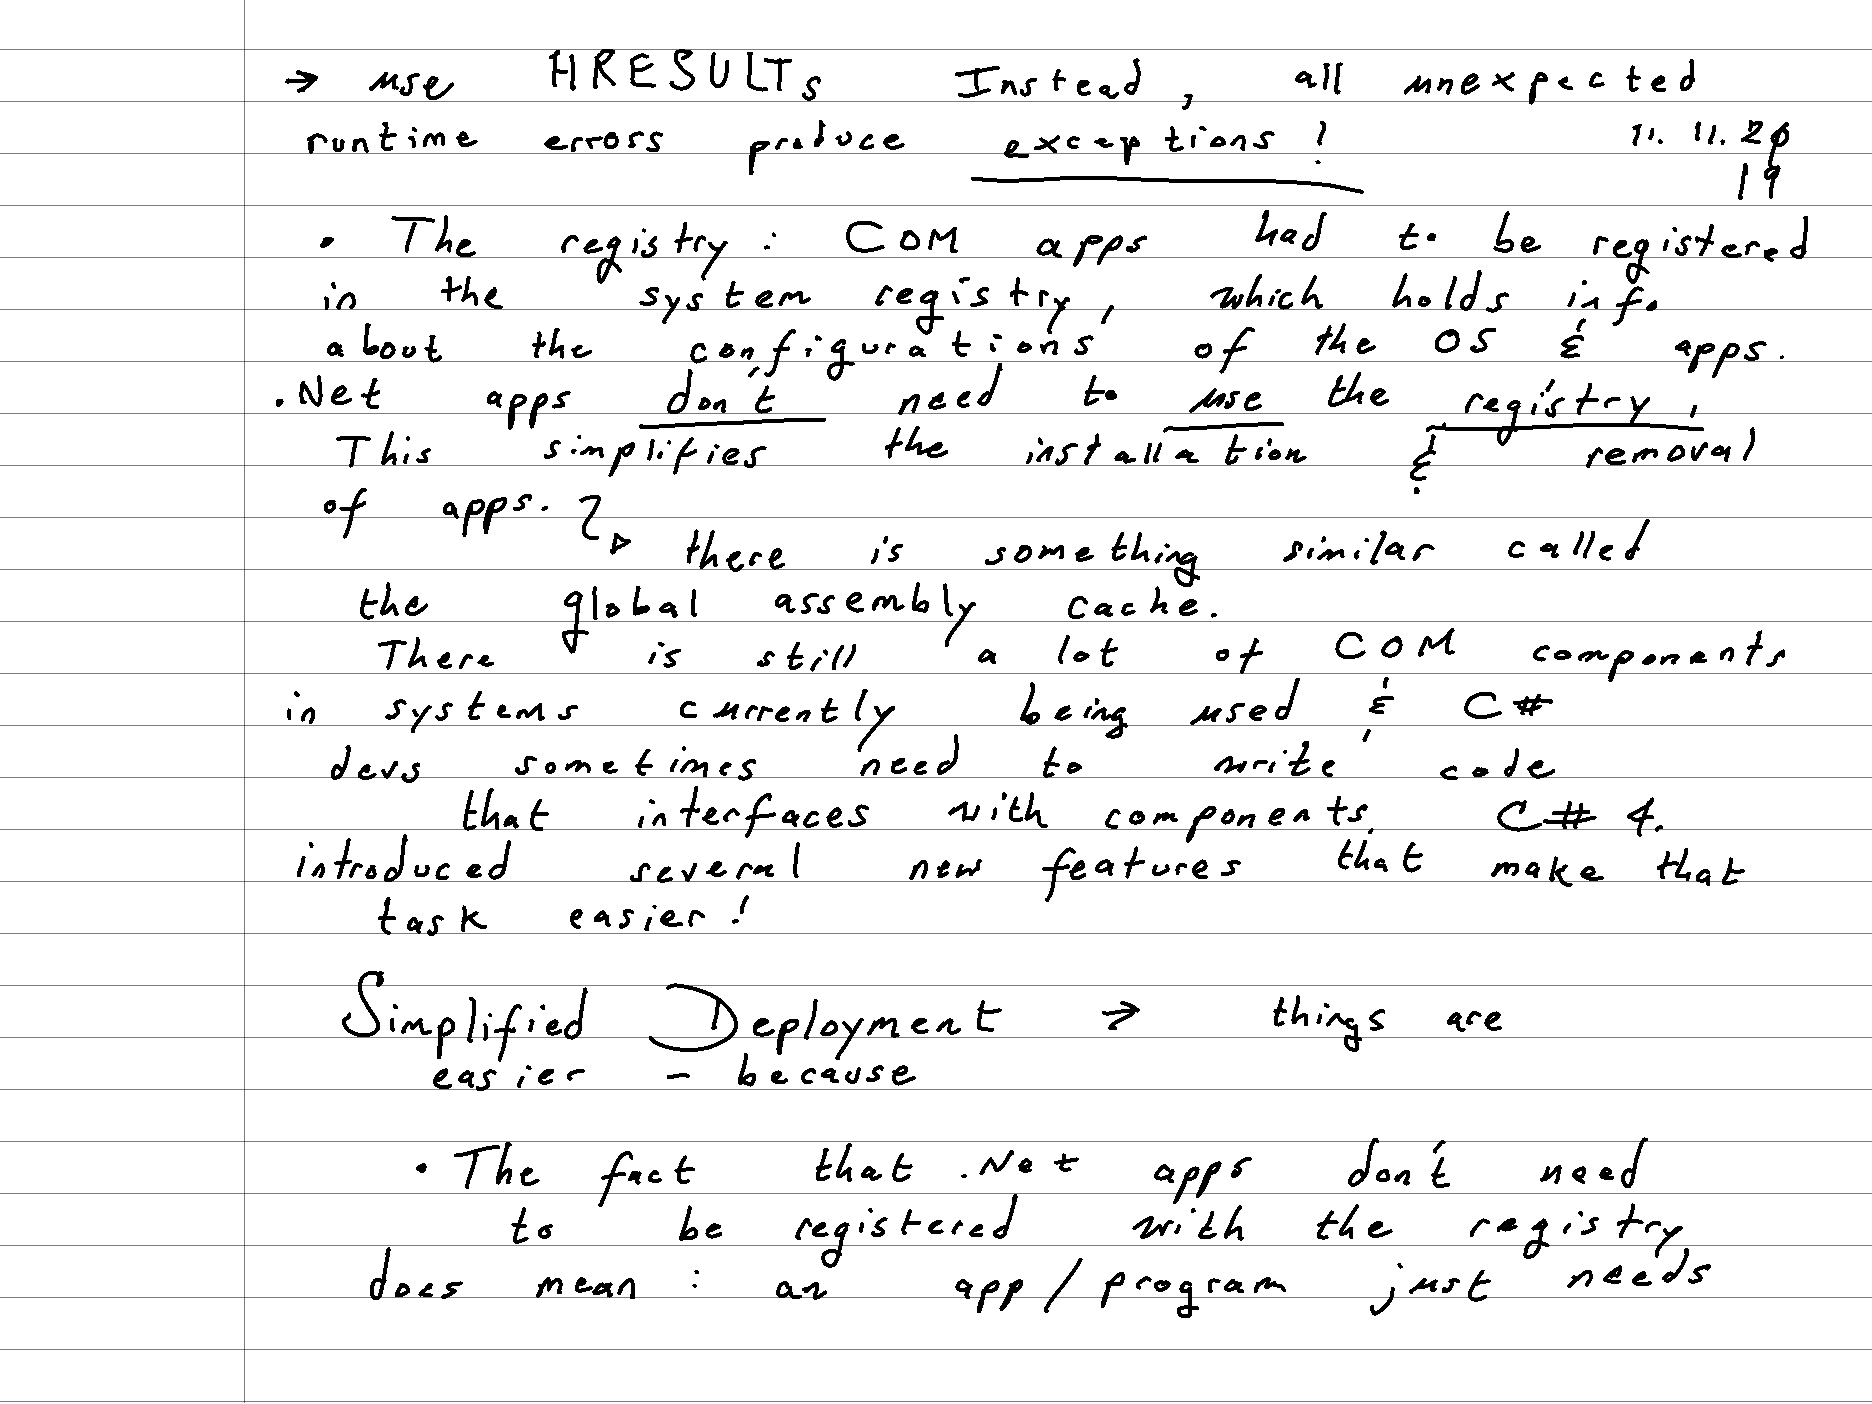 → use HRESULTs Instead, all unexpected
runtime errors produce exceptions!
11. 11. 20
19
• The registry: COM apps had to be registered
in the system registry, which holds info
about the configurations of the OS & apps.
.Net apps don't need to use the registry,
This simplifies the installation & removal
of apps.
there is something similar called
the global assembly cache.
There is still a lot of COM components
in systems currently being used & C#
devs sometimes need to write code
that interfaces with components. C# 4.
introduced several new features that make that
task easier!
Simplified Deployment → things are
easier - because
• The fact that .Net apps don't need
to be registered with the registry
does mean: an app/program just needs